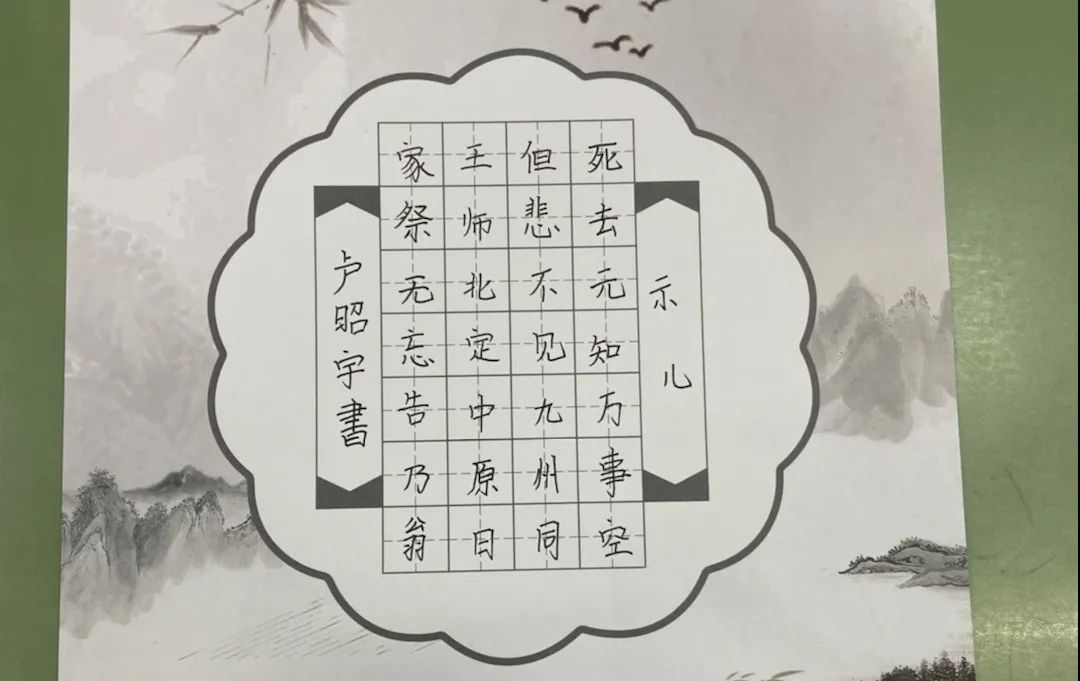 示儿
死去元知万事空
但悲不见九州同
王师北定中原日
家祭无忘告乃翁
卢昭宇書